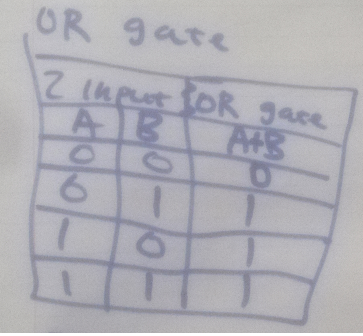 OR gate
2 input OR gate
A B A+B
0 0 0
0 1 1
1 0 1
1 1 1